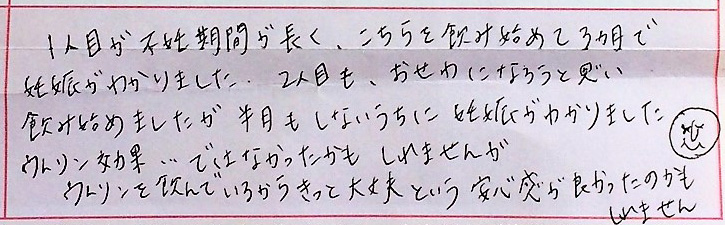 1人目が不妊期間が長く、こちらを飲み始めて3ヵ月で
妊娠がわかりました。2人目も、おせわになろうと思い
飲み始めましたが半月もしないうちに妊娠がわかりました
ウムリン効果…ではなかったかもしれませんが
ウムリンを飲んでいるからきっと大丈夫という安心感が良かったのかも
しれません